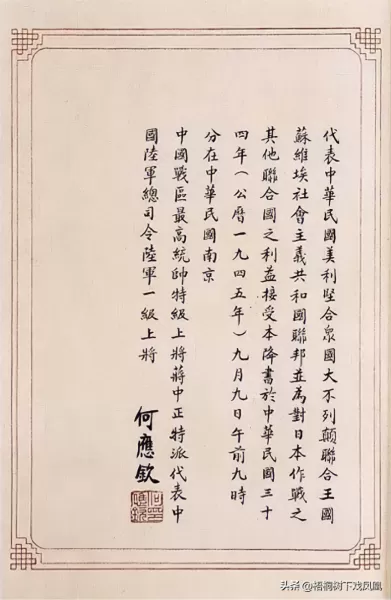 代表中華民國美利堅合衆國大不列顛聯合王國
蘇維埃社會主義共和國聯邦並為對日本作戰之
其他聯合國之利益接受本降書於中華民國三十
四年(公曆一九四五年)九月九日午前九時
分在中華民國南京
中國戰區最高統帥特級上將蔣中正特派代表中
國陸軍總司令陸軍一級上將
何應欽
头条 @梧桐树下戏凤凰